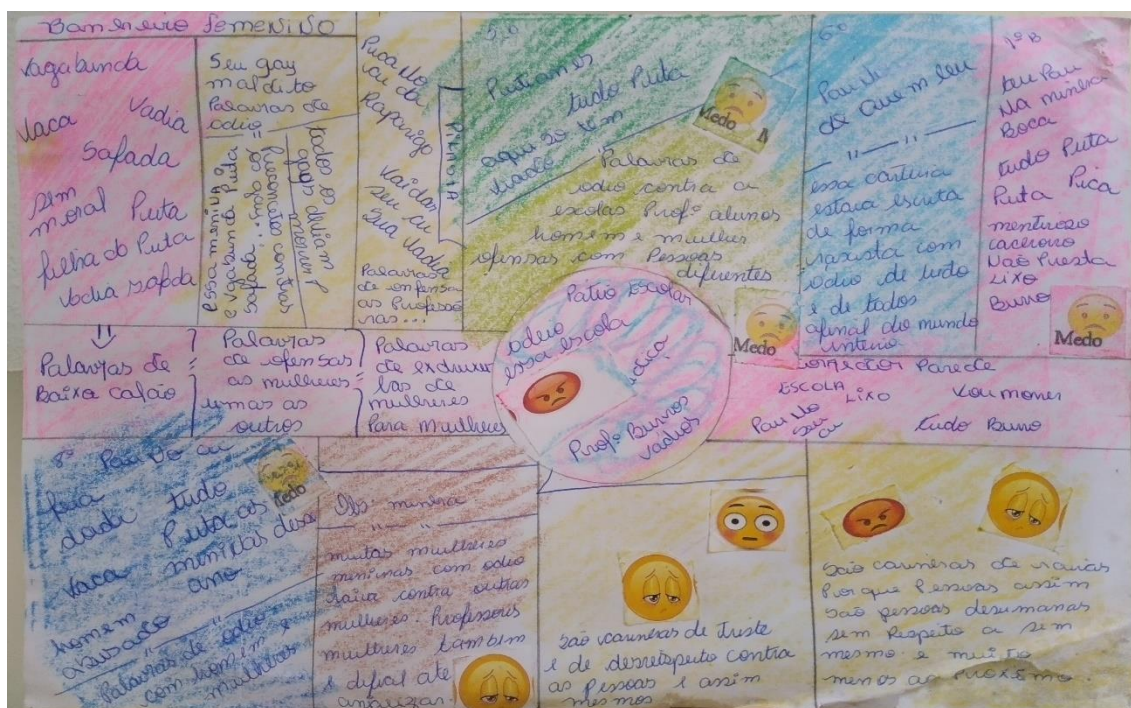 Banheiro femenino
vagabunda
vaca
vadia
safada
sem
moral Puta
filha do Puta
vadia safada
Seu gay
maldito
Palavras de
odio
essa menina?
e vagabunda Puta
safada...
todos os
gays diviam
morrer!
Pica No
cu da
Rapariga
vai dan
seu cu
sua vadia
Palavras
de
as Professo
ras...
5º
Putianes
tudo Puta
aqui só tem
viado
Medo
Palavras de
odio contra a
escolas Profº alunos
homem e mulher
ofensas com Pessoas
diferentes
Medo
6º
Pau No
de quem leu
essa carteira
estava escrita
de forma
com
odio de tudo
e de todos
afinal do mundo
inteiro
1º B
teu Pau
Na minha
Boca
tudo Puta
Puta Pica
mentiroso
Não Presta
Lixo
Burro
Medo
Palavras de
Baixo calão
Palavras
de ofensas
as mulheres
umas as
outros
Palavras
de
las de
mulheres
Para mulheres
Patio Escolar
odeio
essa escola
Profº Burros
vadios
Parede
ESCOLA
LIXO
vou morrer
Pau No
seu
cu
tudo Burro
8º Pau No cu
feia
tudo
Medo
Puta as
meninas desse
ano
vaca
homem
abusado
Palavras de odio
com homem e
mulheres
Obs menina
muitas mulheres
meninas com odio
raiva contra outras
mulheres. Professores
mulheres tambem
e dificil ate
analizar.
são carinhas de Triste
e de desrespeito contra
as Pessoas e assim
mesmos
são carinhas de raivas
Porque Pessoas assim
são pessoas desumanas
sem Respeito a sem
mesmo e muito
menos ao Proximo.